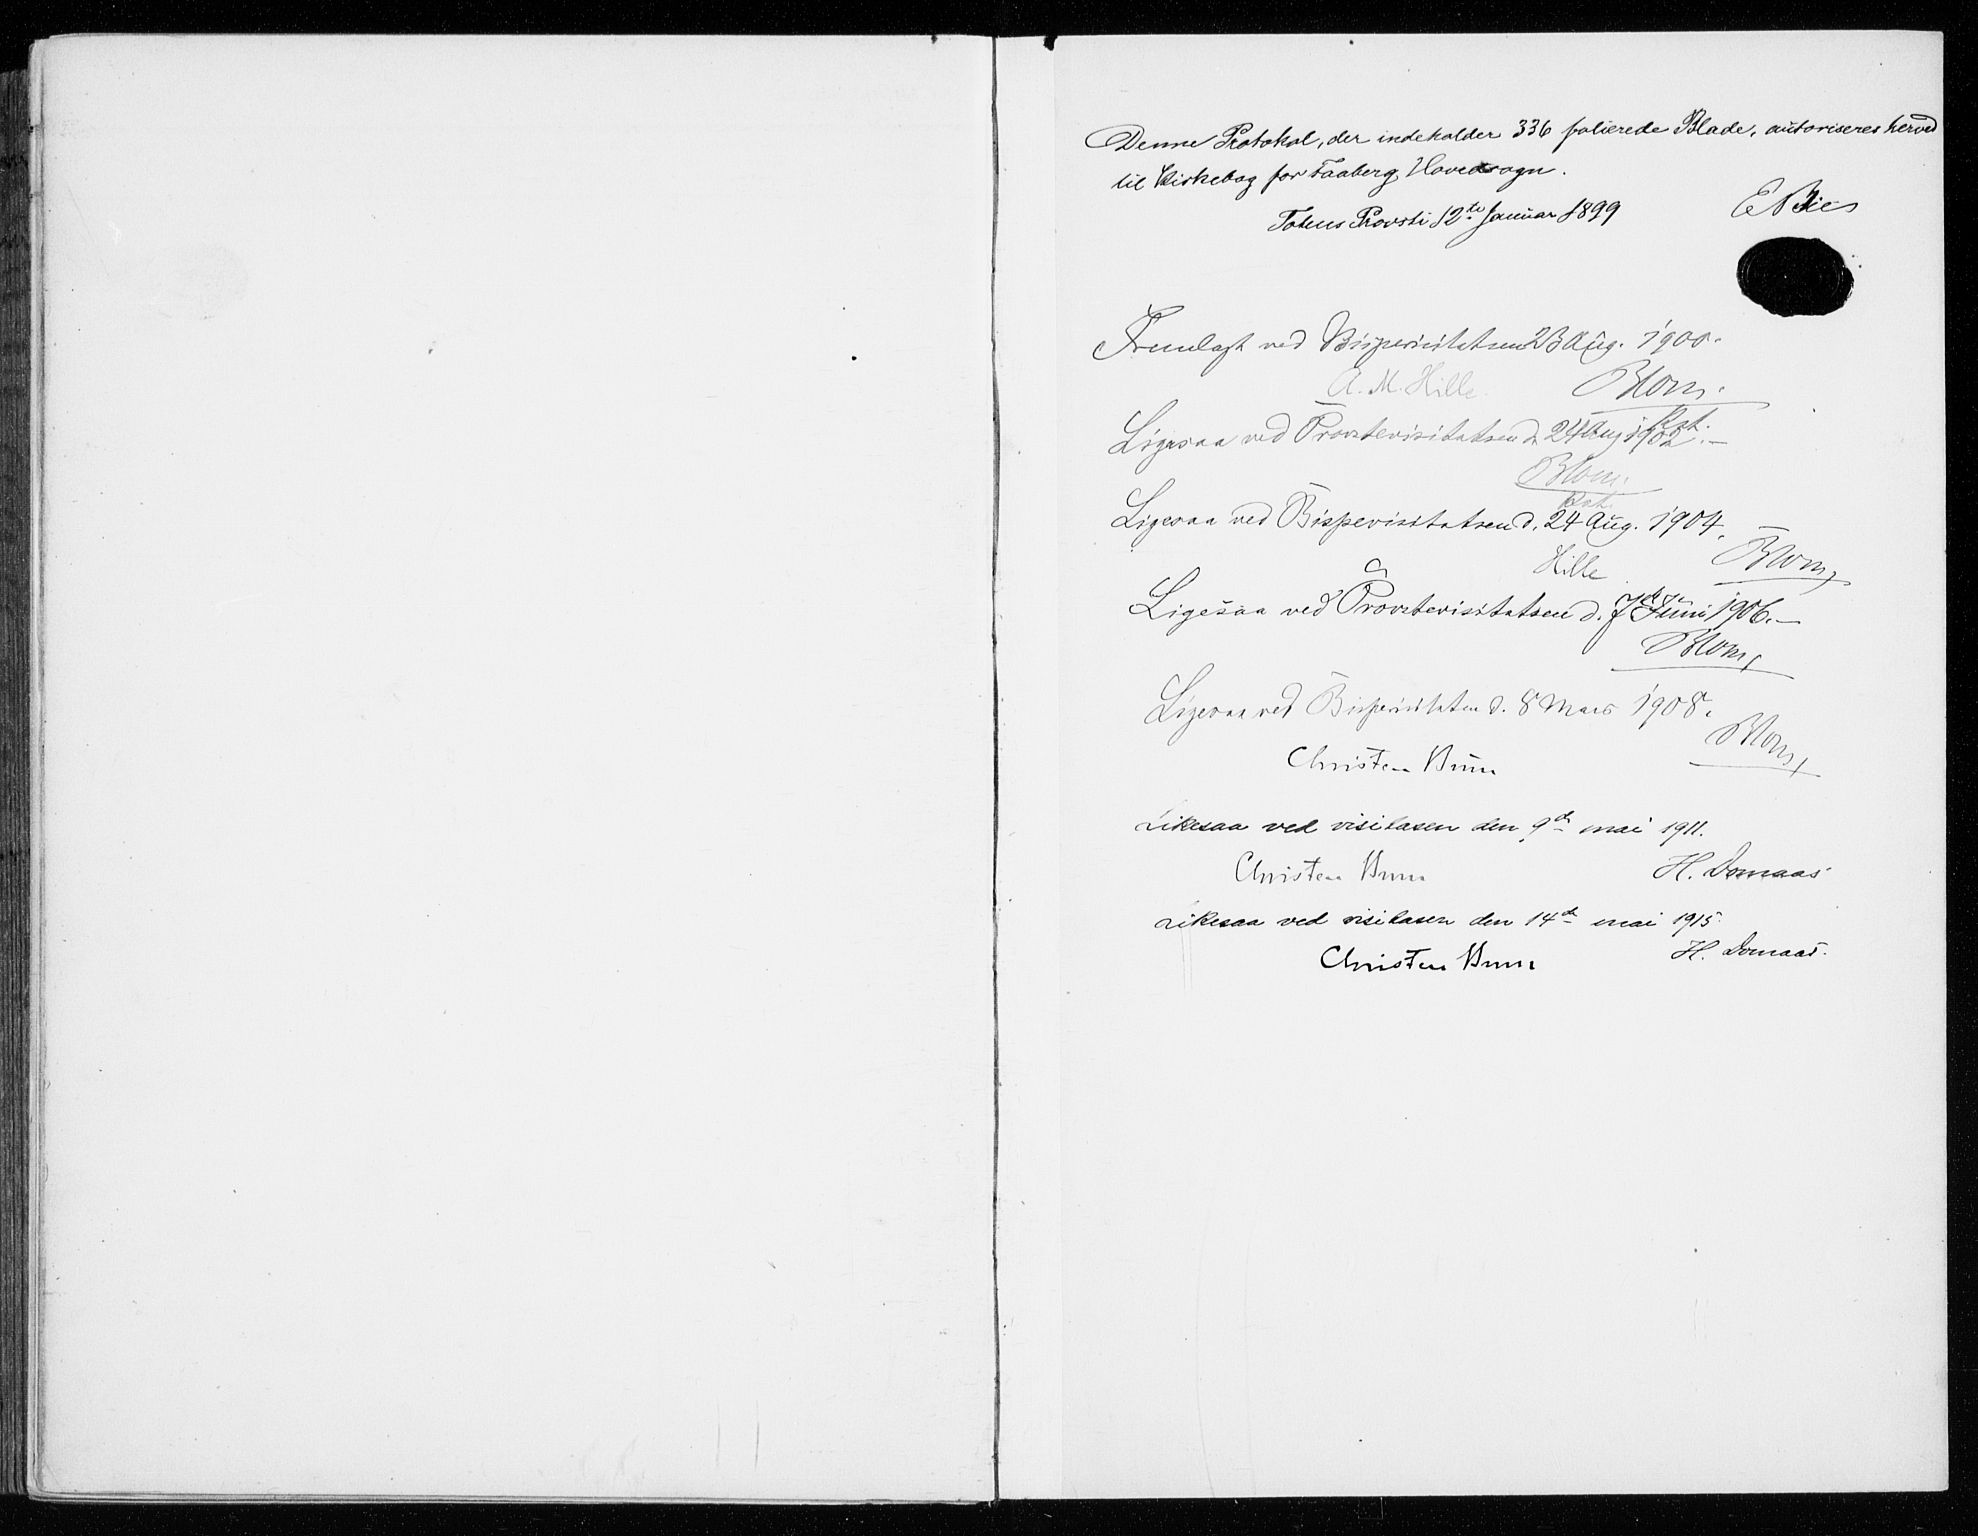 Denne Protokol, der indeholder 336 folierede Blade, autoriseres herved
til Kirkebog for Faaberg Hovedsogn.
Totens Provsti 12te Januar 1899
Fremlagt ved Bispevisitatsen 23 Aug. 1900.
A. M. Hille.
Blom.
Ligesaa ved Provstevisitatsen d. 24 Aug 1902.—
Blom.
Ligesaa ved Bispevisitatsen d. 24 Aug. 1904.
Hille
Blom,
Ligesaa ved Provstevisitatsen d. 7de Juni 1906.—
Blom,
Ligesaa ved Bispevisitatsen d. 8 Mars 1908.
Blom,
Christen Brun
Likesaa ved visitasen den 9de mai 1911.
Christen Brun
H. Domaas
Likesaa ved visitasen den 14de mai 1915.
H. Domaas.
Christen Brun